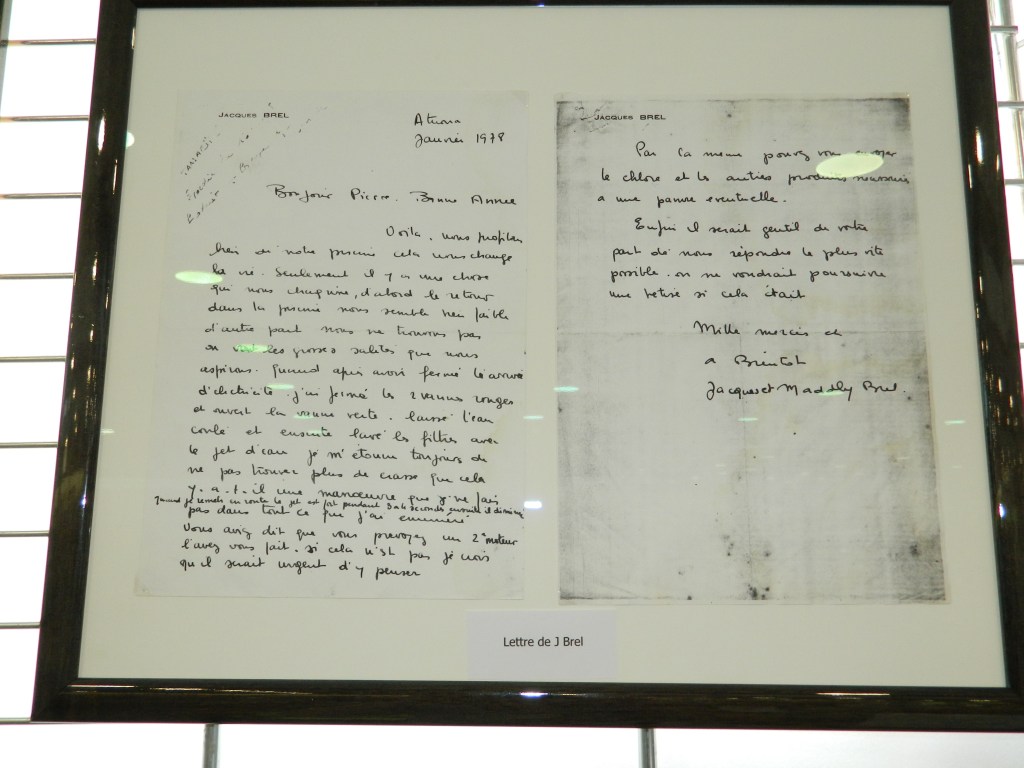 JACQUES BREL
Atuona
Janvier 1978
Bonjour Pierre. Bonne Année
Voila. nous profitons
bien de notre piscine cela nous change
la vie. Seulement il y a une chose
qui nous chagrine, d'abord le retour
dans la piscine nous semble bien faible
d'autre part nous ne trouvons pas
on les grosses saletés que nous
aspirons. Quand apres avoir fermé l'arrivée
d'électricité. j'ai fermé les 2 vannes rouges
et ouvert la vanne verte. laissé l'eau
coulé et ensuite lavé les filtres avec
le jet d'eau je m'étonne toujours de
ne pas trouver plus de crasse que cela
y. a. t. il une manœuvre que je ne fais
quand je remets en route le jet est fort pendant 3 a 4 secondes ensuite il diminue
pas dans tout ce que j'ai enuméré
Vous aviez dit que vous prevoyez un 2e moteur
l'avez vous fait. si cela n'est pas je crois
qu'il serait urgent d'y penser
JACQUES BREL
Par la meme pouvez vous envoyer
le chlore et les autres produits necessaires
a une panne eventuelle.
Enfin il serait gentil de votre
part de nous répondre le plus vite
possible. on ne voudrait poursuivre
une betise si cela était
Mille mercis et
a Bientot
Jacques et Maddly Brel.
Lettre de J Brel